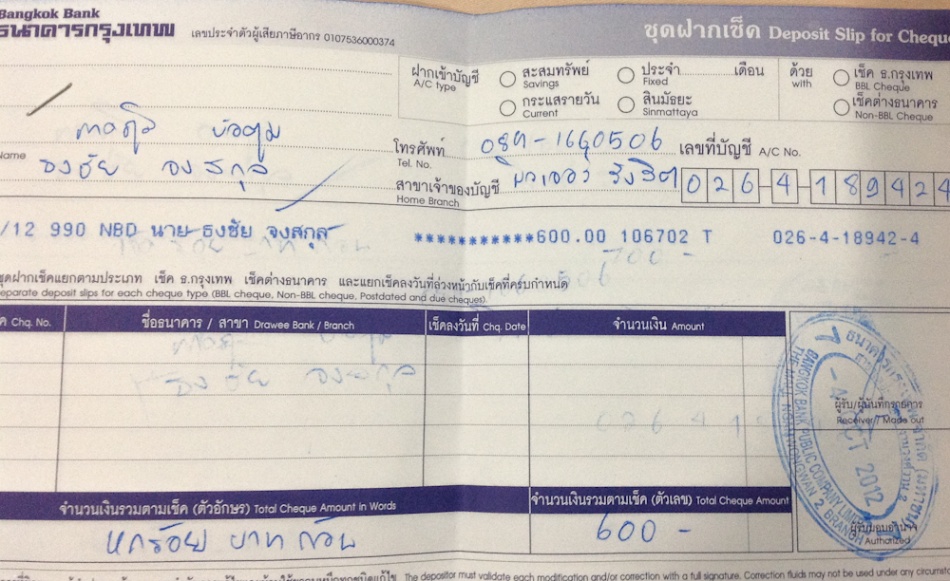 Bangkok Bank
ธนาคารกรุงเทพ เลขประจำตัวผู้เสียภาษีอากร 0107536000374
ชุดฝากเช็ค Deposit Slip for Cheque
ฝากเข้าบัญชี A/C type
สะสมทรัพย์ Savings
ประจำ......เดือน Fixed
กระแสรายวัน Current
สินมัธยะ Sinmattaya
ด้วย with
เช็ค ธ.กรุงเทพ BBL Cheque
เช็คต่างธนาคาร Non-BBL Cheque
โทรศัพท์ Tel. No. 089-1660506 เลขที่บัญชี A/C No.
Name ธงชัย จงสกุล
สาขาเจ้าของบัญชี Home Branch รังสิต 026-4-189424
/12 990 NBD นาย ธงชัย จงสกุล ***********600.00 106702 T 026-4-18942-4
ชุดฝากเช็คแยกตามประเภท เช็ค ธ.กรุงเทพ เช็คต่างธนาคาร และแยกเช็คลงวันที่ล่วงหน้ากับเช็คที่ครบกำหนด
eparate deposit slips for each cheque type (BBL cheque, Non-BBL cheque, Postdated and due cheques).
Chq. No. ชื่อธนาคาร / สาขา Drawee Bank / Branch เช็คลงวันที่ Chq. Date จำนวนเงิน Amount
ผู้รับ/ผู้บันทึกรายการ
Receiver/Made out
OCT 2012
BANGKOK BANK PUBLIC COMPANY LIMITED
THE MALL NGAMWONGWAN 2 BRANCH
ผู้รับมอบอำนาจ
Authorized
จำนวนเงินรวมตามเช็ค (ตัวอักษร) Total Cheque Amount in Words จำนวนเงินรวมตามเช็ค (ตัวเลข) Total Cheque Amount
หกร้อย บาท ถ้วน 600 -
The depositor must validate each modification and/or correction with a full signature. Correction fluids may not be used under any circums